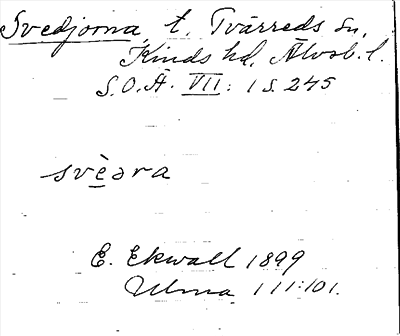 Svedjorna, t. Tvärreds sn,
Kinds hd, Älvsb. l.
S.O.Ä. VII: 1 s. 245
svè̱əra
E. Ekwall 1899
Ulma 111:101.